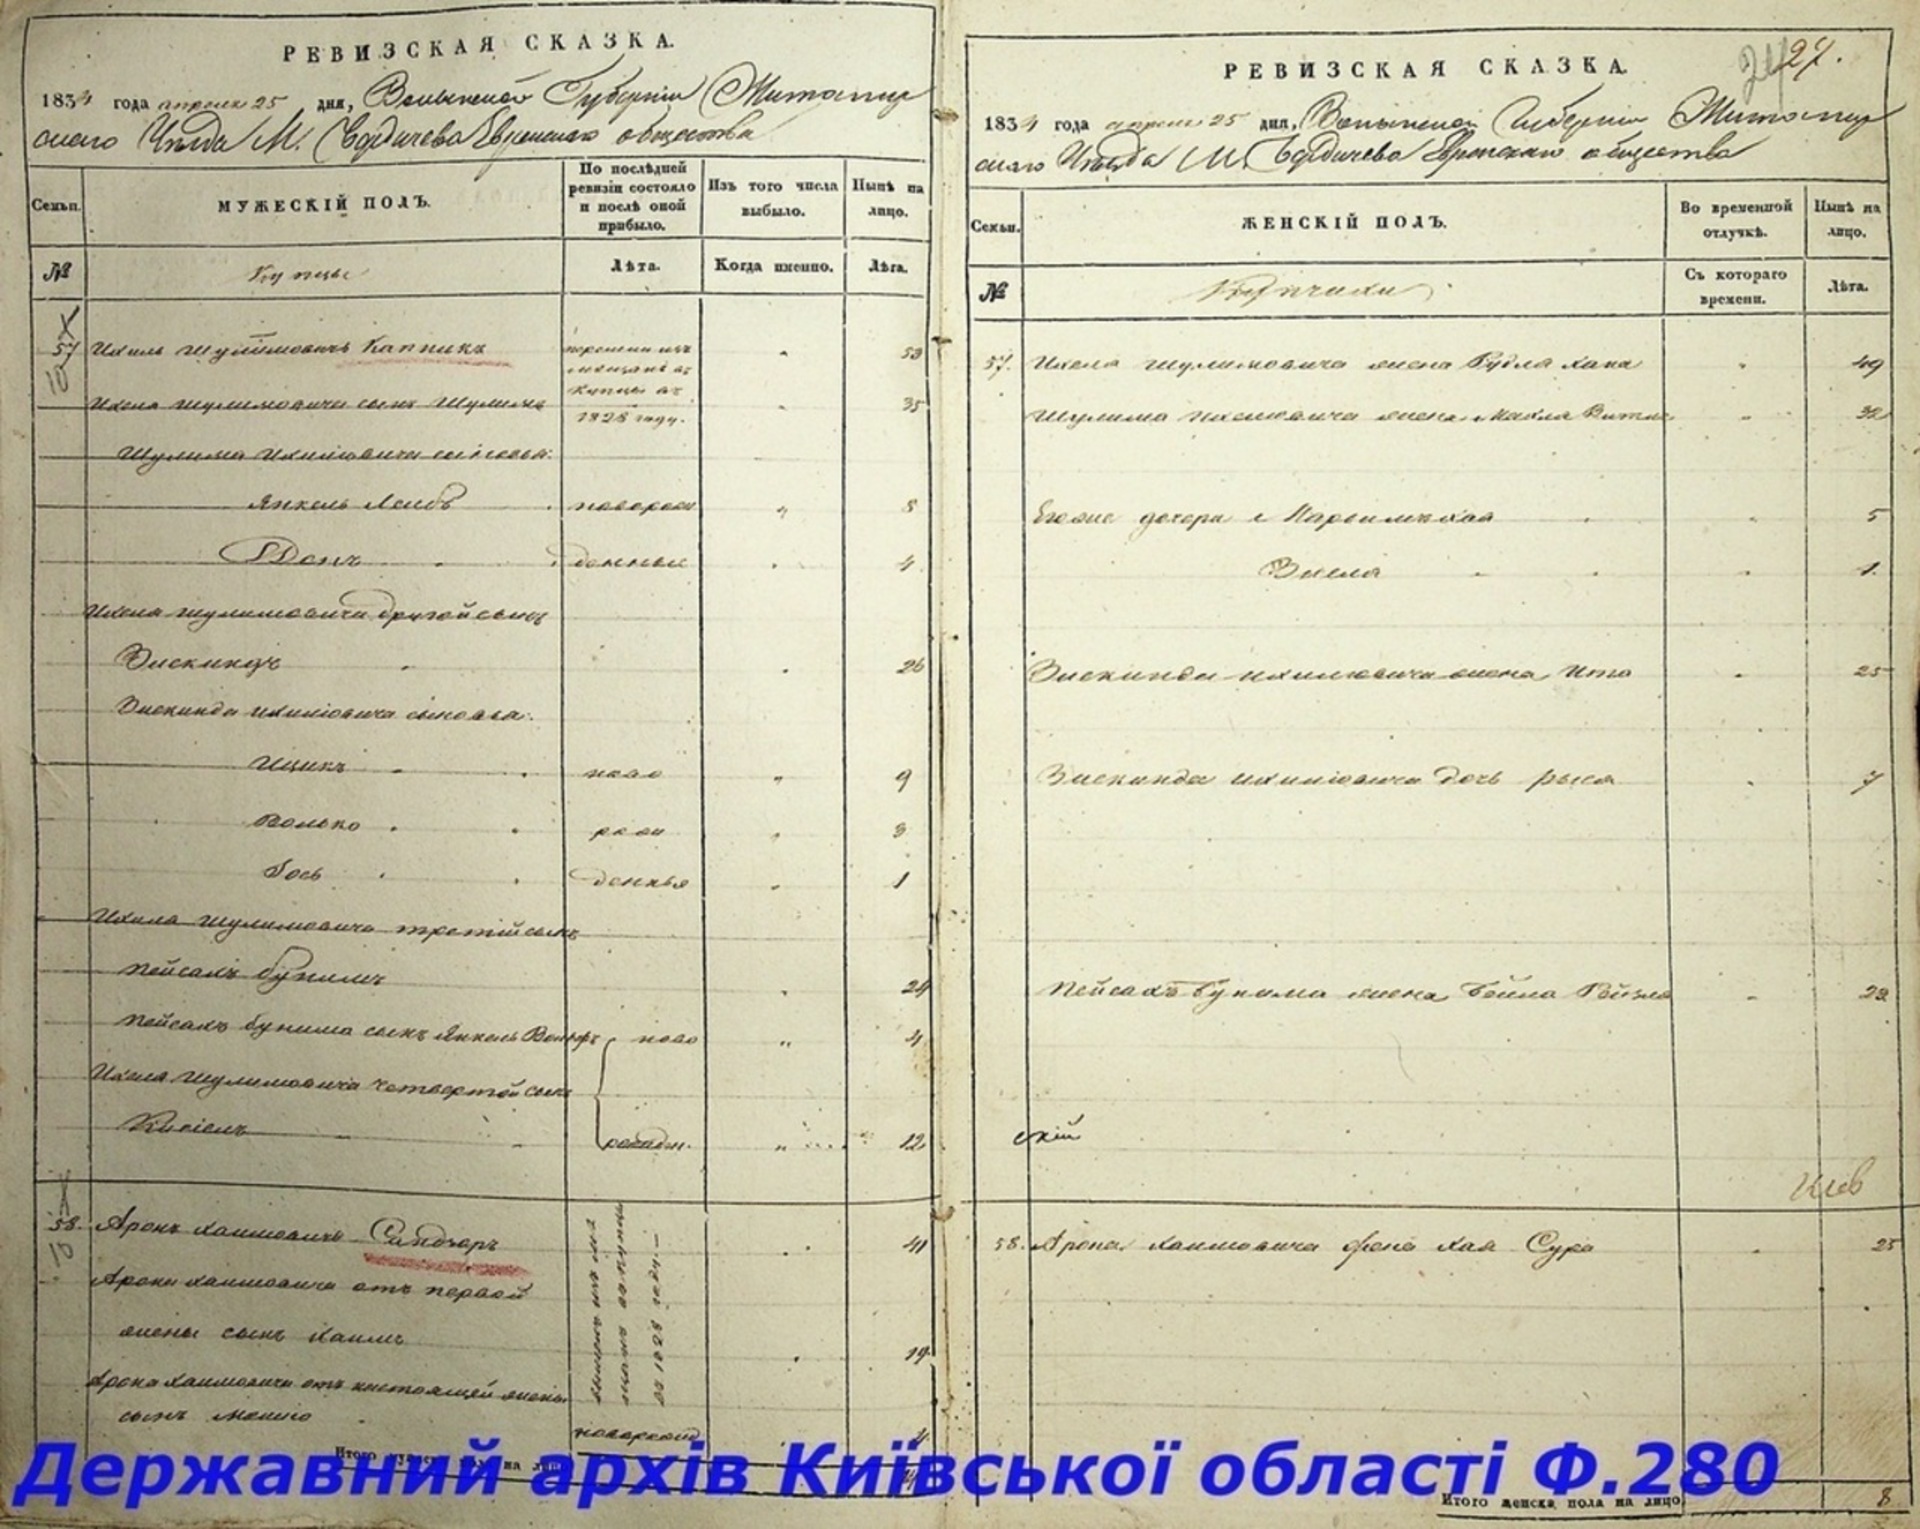 РЕВИЗСКАЯ СКАЗКА.
1834 года апреля 25 дня, Волынской Губернии Житомир
скаго Уезда М. Бердичева Еврейскаго общества
Семьи.
МУЖЕСКІЙ ПОЛЪ.
По послѣдней ревизіи состояло и послѣ оной прибыло.
Изъ того числа выбыло.
Нынѣ на лицо.
№
Купцы
Лѣта.
Когда именно.
Лѣта.
57 Ихиль Шулимовичъ Капникъ 53
10
перешли изъ
мещанъ въ
купцы въ
1828 году.
Ихеля Шулимовича сынъ Шулимъ 35
Шулима Ихилиовича сыновья:
Янкель Лейбъ новорож 8
Донъ денные 4
Ихеля Шулимовича другой сынъ
Зискиндъ 26
Зискинда Ихилиовича сыновья:
Ицикъ ново 9
Волько рож 3
Гось денныя 1
Ихеля Шулимовича третій сынъ
Пейсахъ Бунимъ 24
Пейсахъ Бунима сынъ Янкель Вольфъ ново 4
Ихеля Шулимовича четвертой сынъ
Кисіель рожден. 12
58. Аронъ Хаимовичъ Сандлеръ 41
10
Арона Хаимовича отъ первой
жены сынъ Хаимъ 19
Арона Хаимовича отъ настоящей жены
сынъ Мошко
въ 1828 году
новорожд
Итого на лицо
РЕВИЗСКАЯ СКАЗКА.
27.
1834 года апреля 25 дня, Волынской Губерніи Житомир
скаго Уезда М. Бердичева Еврейскаго общества
Семьи.
ЖЕНСКІЙ ПОЛЪ.
Во временной отлучкѣ.
Нынѣ на лицо.
№
Купчихи
Съ котораго времени.
Лѣта.
57. Ихеля Шулимовича жена Рудля Хана 49
Шулима Ихелиовича жена Махля 32
Егоже дочери 5
Висла 1
Зискинда Ихилиовича жена Ита 25
Зискинда Ихилиовича дочь Рыся 7
Пейсахъ Бунима жена Бейла Рейзля 23
скій
Кіев
58. Арона Хаимовича жена Хая Сура 25
Итого женска пола на лицо 8
Державний архів Київської області Ф.280